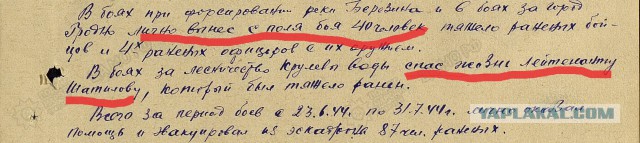 В боях при форсировании реки Березина и в боях за город
Гродно лично вынес с поля боя 40 человек тяжело раненых бой-
цов и 4х раненых офицеров с их оружием.
В боях за лесничество Крулевы воды спас жизнь Лейтенанту
Шатилову, который был тяжело ранен.
Всего за период боев с 23.6.44. по 31.7.44г. лично оказал
помощь и эвакуировал из эскадрона 87 чел. раненых.
YAPLAKAL.COM